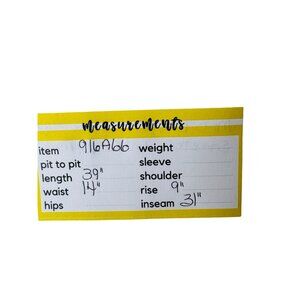 measurements
item 916A66 weight
pit to pit sleeve
length 39" shoulder
waist 14" rise 9"
hips inseam 31"